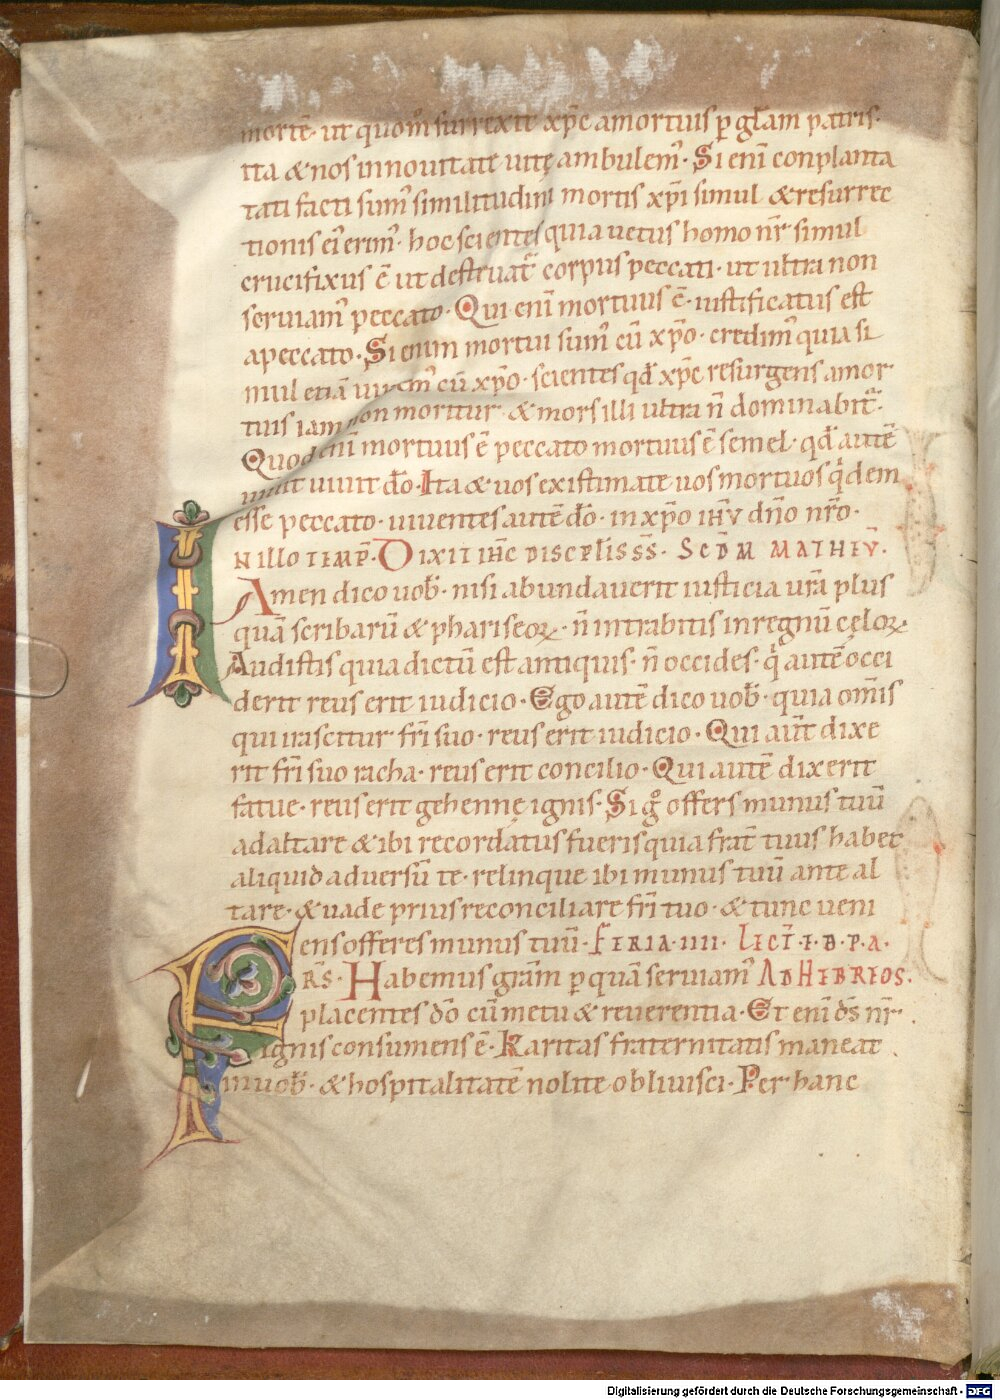 mortē· ut quom̄ surrexit xp̄c amortuis p gl̄am patris·
ita & nos innouitate uitę ambulem᷒· Si eni conplanta
tati facti sum᷒ similitudini mortis xp̄i simul & resurrec
tionis ei᷒ erim᷒· hoc scientes quia uetus homo nr̄ simul
crucifixus ē ut destruat᷑ corpus peccati· ut ultra non
seruiam᷒ peccato· Qui eni mortuus ē· iustificatus est
apeccato· Si enim mortui sum᷒ cū xp̄o· credim᷒ quia si
mul etiā uiuem᷒ cū xp̄o· scientes qd̄ xp̄c resurgens amor
tuis iam non moritur· & mors illi ultra n̄ dominabit᷑·
Quod eni mortuus ē peccato mortuus ē semel· qd̄ autē
uiuit uiuit dō· Ita & uos existimate uos mortuos qͥdem
esse peccato· uiuentes autē dō· in xp̄o ihv̄ dn̄o nr̄o·
IN ILLO TEMP̄· DIXIT IHC̄ DISCPL̄IS S̄S̄· SCD̄M MATHEV̄·
Amen dico uob̄· nisi abundauerit iusticia ur̄a plus
quā scribarū & phariseoꝝ· n̄ intrabitis inregnū cęloꝝ·
Audistis quia dictū est antiquis· n̄ occides· qͥ autē occi
derit reus erit iudicio· Ego autē dico uob̄· quia om̄is
qui irascitur fr̄i suo· reus erit iudicio· Qui aut̄ dixe
rit fr̄i suo racha· reus erit concilio· Qui autē dixerit
fatue· reus erit gehennę ignis· Sigͦ offers munus tuū
adaltare & ibi recordatus fueris quia frat̄ tuus habet
aliquid aduersū te· relinque ibi munus tuū ante al
tare· & uade prius reconciliare fr̄i tuo· & tunc ueni
ens offeres munus tuū· FERIA·IIII· LECT̄·E·B·P·A·
FRS̄· Habemus grām p quā seruiam᷒ AD HEBREOS·
placentes dō cū metu & reuerentia· Et eni ds̄ nr̄·
ignis consumens ē· Karitas fraternitatis maneat
inuob̄· & hospitalitatē nolite obliuisci· Per hanc
Digitalisierung gefördert durch die Deutsche Forschungsgemeinschaft - DFG